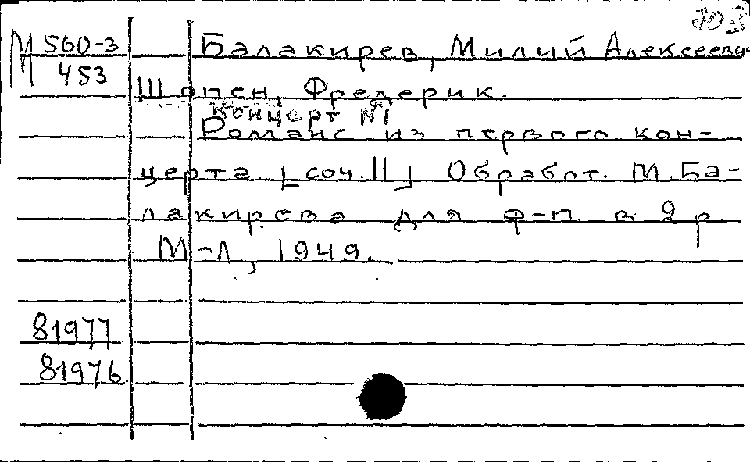 М 560-3
М 453
Балакирев, Милий Алексеевич
Шопен, Фредерик.
Концерт №1
Романс из первого кон-
церта [соч. 11] Обработ. М. Ба-
лакирева для ф-п. в 2 р.
М-Л, 1949.
81977
81976